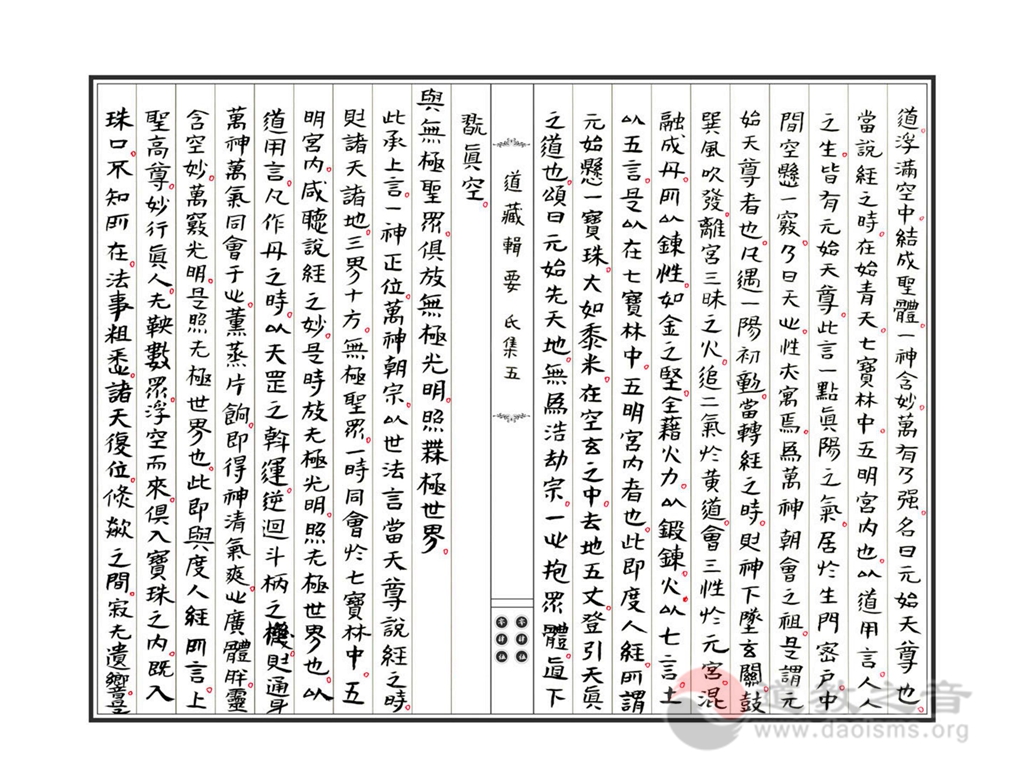 道浮滿空中。結成聖體。一神含妙。萬有乃强。名曰元始天尊也。
當說經之時。在始青天。七寶林中。五明宮內也。以道用言。人人
之生。皆有元始天尊。此言一點眞陽之氣。居於生門密戶中
間。空懸一竅。乃曰天心。性大寓焉。爲萬神朝會之祖。是謂元
始天尊者也。凡遇一陽初動。當轉經之時。則神下墜玄關。鼓
巽風吹發。離宮三昧之火。追二氣於黃道。會三性於元宮。混
融成丹。所以鍊性。如金之堅。全藉火力。以鍛鍊。火以七言。土
以五言。是以在七寶林中。五明宮內者也。此即度人經。所謂
元始懸一寶珠。大如黍米。在空玄之中。去地五丈。登引天眞
之道也。頌曰。元始先天地。無爲浩劫宗。一心抱眾體。直下
道藏輯要 氐集五
翫眞空。
與無極聖眾。俱放無極光明。照無極世界。
此承上言。一神正位。萬神朝宗。以世法言。當天尊說經之時。
則諸天諸地。三界十方。無極聖眾。一時同會於七寶林中。五
明宮內。咸聽說經之妙。是時放无極光明。照无極世界也。以
道用言。凡作丹之時。以天罡之斡運。逆迴斗柄之機。則通身
萬神萬氣。同會于心。薰蒸片餉。即得神清氣爽。心廣體胖。靈
含空妙。萬竅光明。是照无極世界也。此即與度人經所言。上
聖高尊。妙行眞人。无鞅數眾。浮空而來。俱入寶珠之內。既入
珠口。不知所在。法事粗悉。諸天復位。倏歘之間。寂无遺響。
道教之音
www.daoisms.org